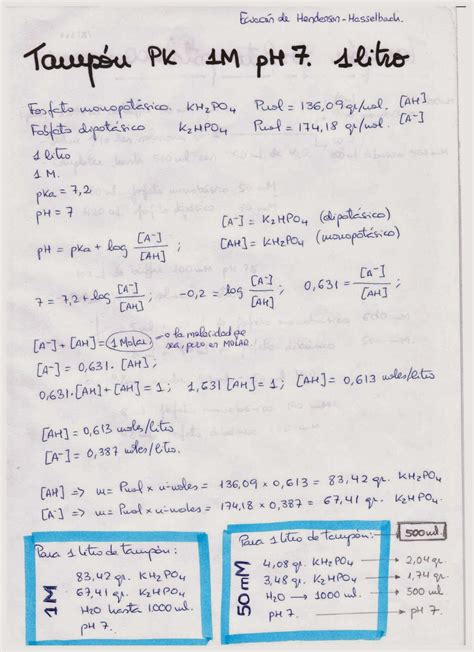 Ecuación de Henderson-Hasselbach.
Tampón PK 1M pH 7. 1 litro
Fosfato monopotásico. KH2PO4 Pmol = 136,09 gr/mol. [AH]
Fosfato dipotásico K2HPO4 Pmol = 174,18 gr/mol. [A-]
1 litro
1 M.
pKa = 7,2
pH = 7
[A-] = K2HPO4 (dipotásico)
[AH] = KH2PO4 (monopotásico)
pH = pKa + log [A-]/[AH] ;
7 = 7,2 + log [A-]/[AH] ; -0,2 = log [A-]/[AH] ; 0,631 = [A-]/[AH]
[A-] + [AH] = 1 Molar → o la molaridad que sea, pero en MOLAR.
[A-] = 0,631. [AH] ;
0,631. [AH] + [AH] = 1 ; 1,631 [AH] = 1 ; [AH] = 0,613 moles/litro
[AH] = 0,613 moles/litro
[A-] = 0,387 moles/litro.
[AH] => m = Pmol x n-moles = 136,09 x 0,613 = 83,42 gr. KH2PO4
[A-] => m = Pmol x n-moles = 174,18 x 0,387 = 67,41 gr. K2HPO4
Para 1 litro de tampón:
1M
83,42 gr. KH2PO4
67,41 gr. K2HPO4
H2O hasta 1000 ml.
pH 7.
Para 1 litro de tampón: 500 ml.
50 mM
4,08 gr. KH2PO4 → 2,04 gr.
3,48 gr. K2HPO4 → 1,74 gr.
H2O → 1000 ml. → 500 ml
pH 7. → pH 7.